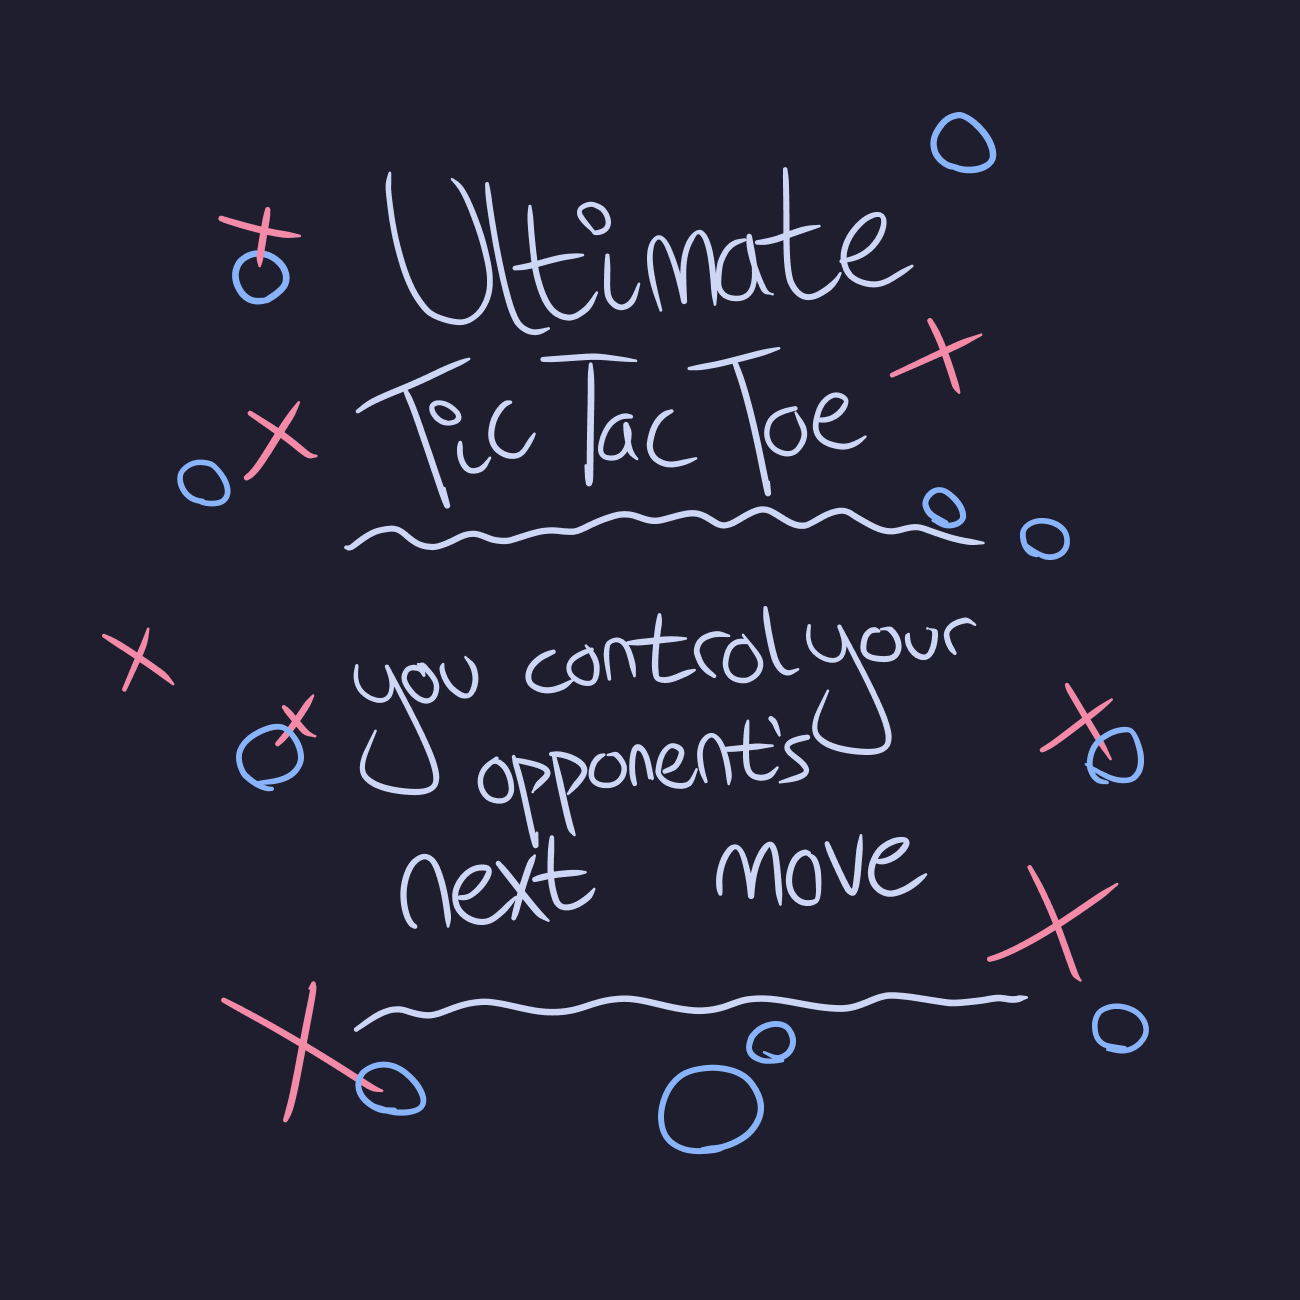 Ultimate
Tic Tac Toe
you control your
opponent's
next move